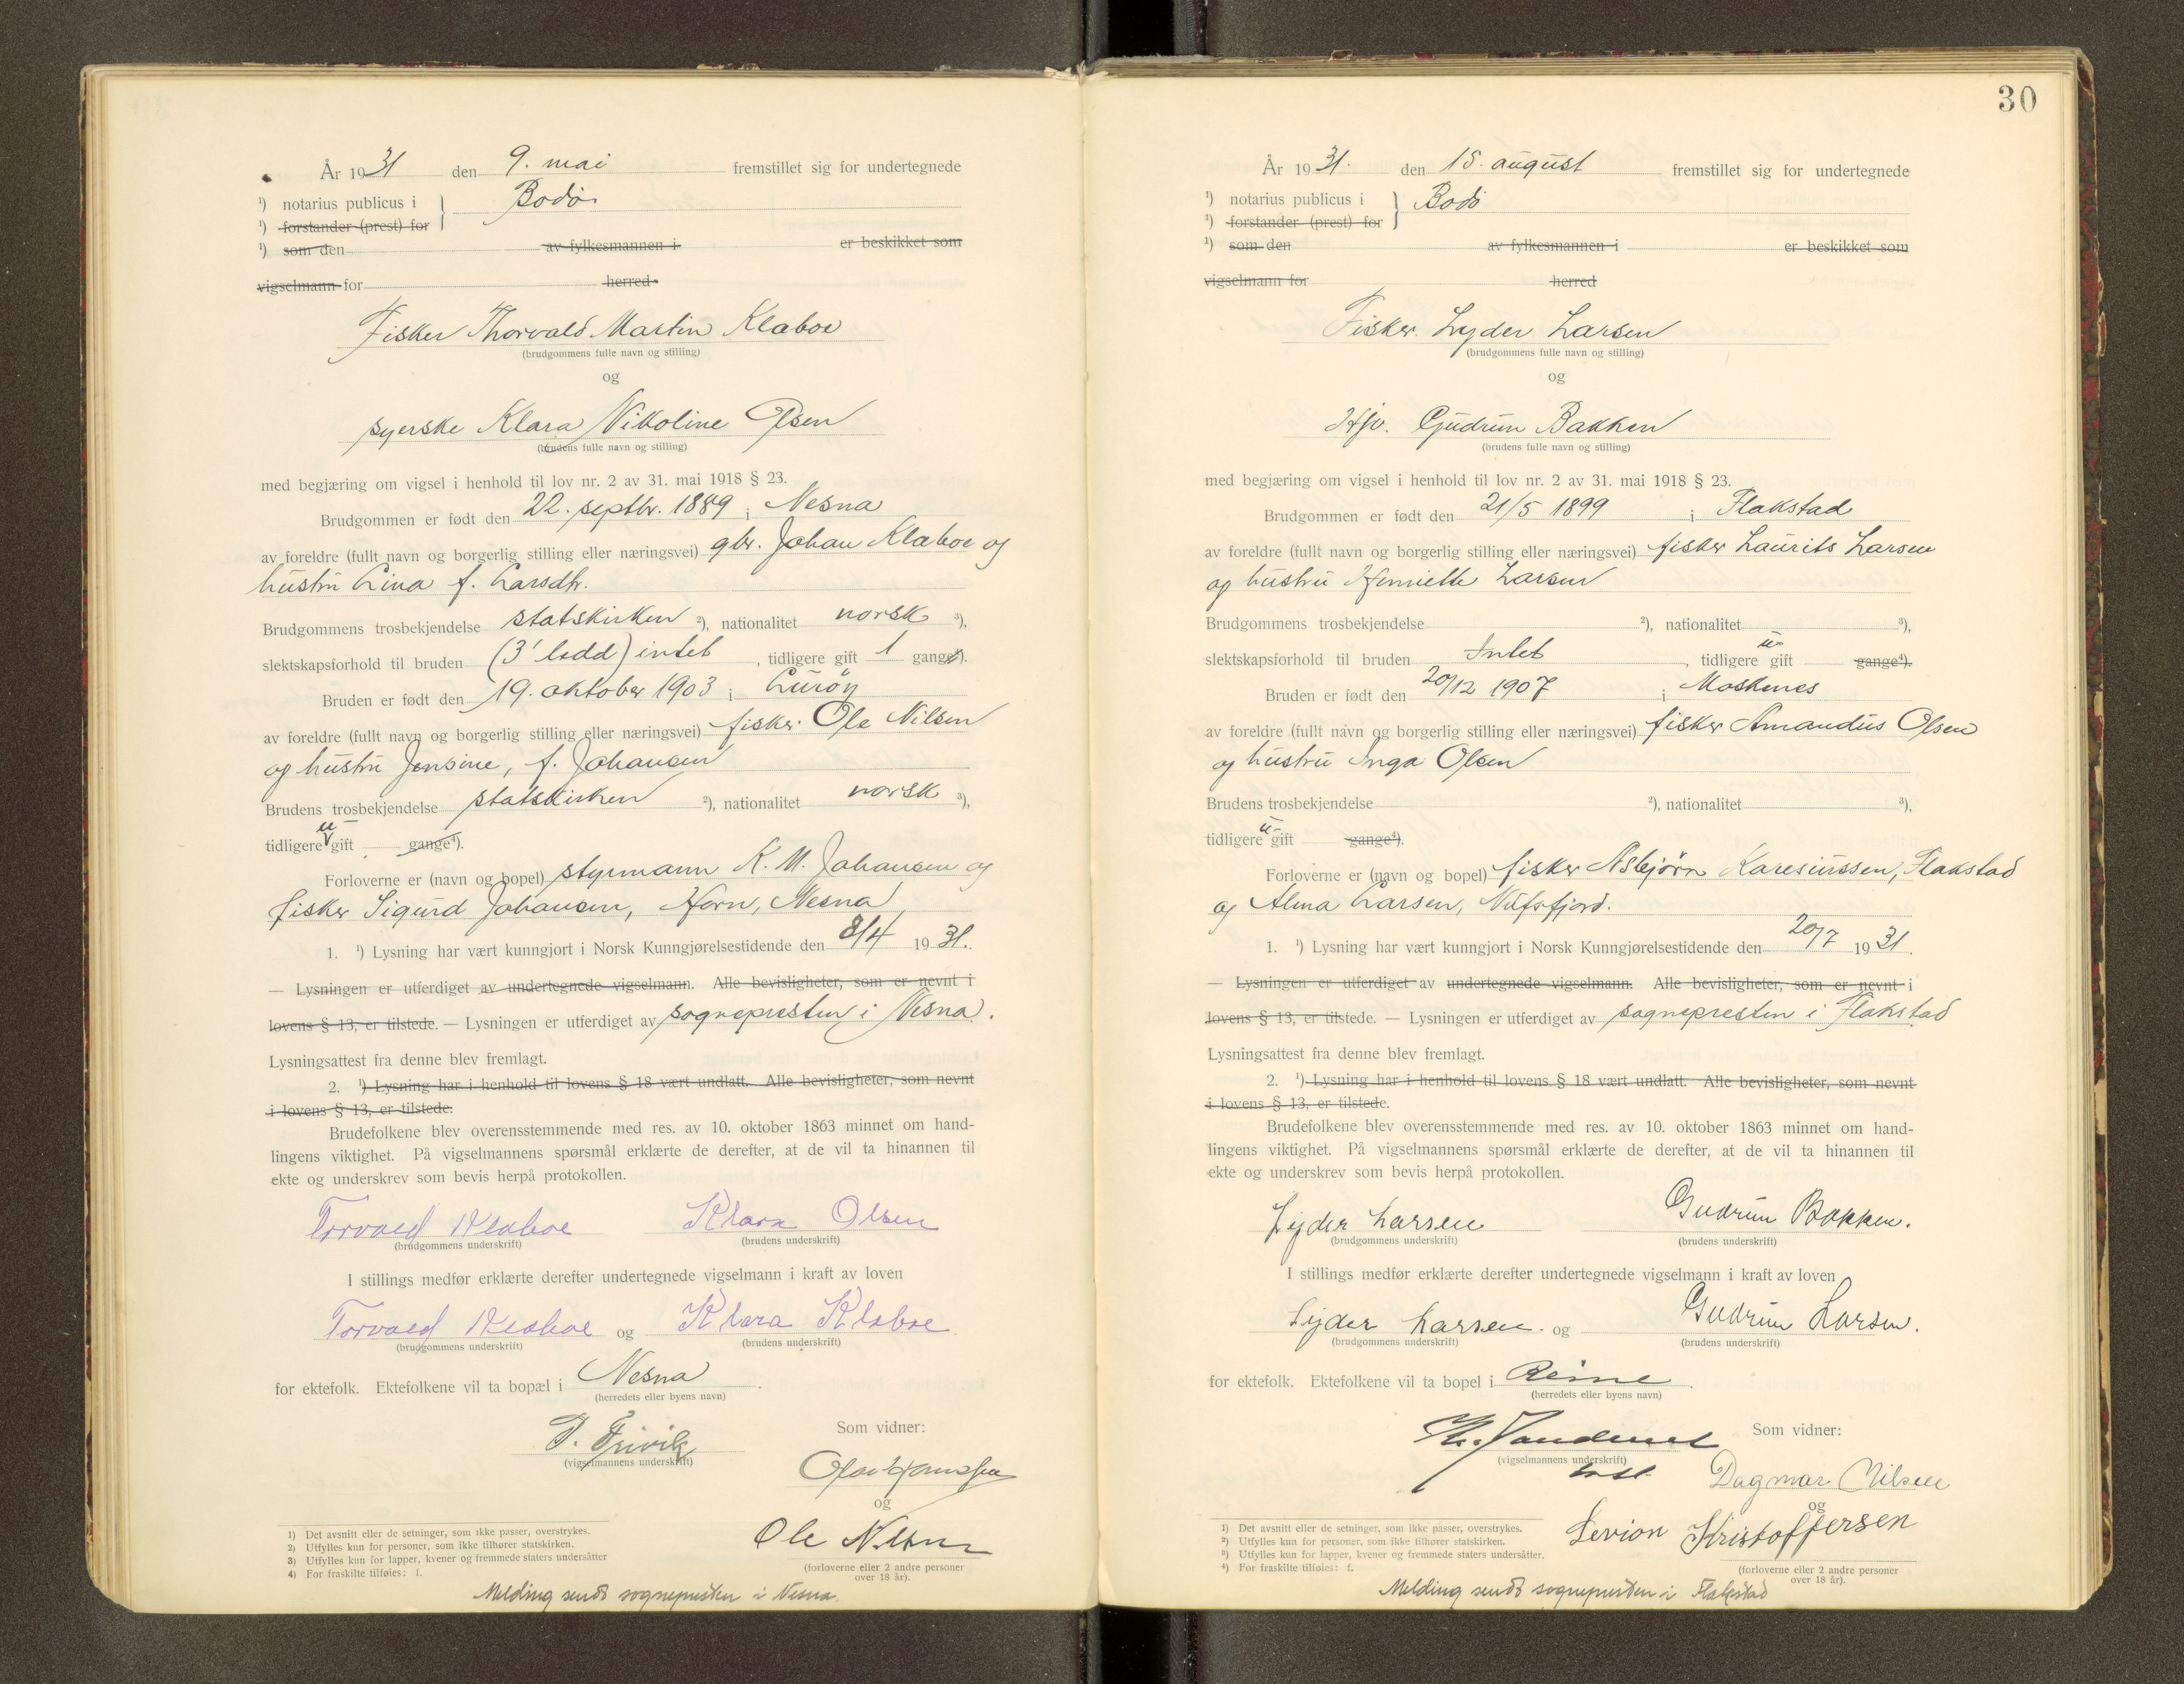 År 1931 den 9. mai fremstillet sig for undertegnede
¹) notarius publicus i } Bodø
¹) forstander (prest) for
¹) som den av fylkesmannen i er beskikket som
vigselmann for herred
Fisker Thorvald Martin Klaboe
(brudgommens fulle navn og stilling)
og
syerske Klara Nikoline Olsen
(brudens fulle navn og stilling)
med begjæring om vigsel i henhold til lov nr. 2 av 31. mai 1918 § 23.
Brudgommen er født den 22. septbr. 1889 i Nesna
av foreldre (fullt navn og borgerlig stilling eller næringsvei) gbr. Johan Klaboe og
hustru Lina f. Larsdtr.
Brudgommens trosbekjendelse statskirken ²), nationalitet norsk ³),
slektskapsforhold til bruden (3' ledd) intet, tidligere gift 1 gange⁴).
Bruden er født den 19. oktober 1903 i Lurøy
av foreldre (fullt navn og borgerlig stilling eller næringsvei) fisker Ole Nilsen
og hustru Jensine, f. Johansen
Brudens trosbekjendelse statskirken ²), nationalitet norsk ³),
tidligere u gift gange⁴).
Forloverne er (navn og bopel) styrmann K. M. Johansen og
fisker Sigurd Johansen, Horn, Nesna
1. ¹) Lysning har vært kunngjort i Norsk Kunngjørelsestidende den 8/4 1931.
— Lysningen er utferdiget av undertegnede vigselmann. Alle bevisligheter, som er nevnt i
lovens § 13, er tilstede. — Lysningen er utferdiget av sognepresten i Nesna.
Lysningsattest fra denne blev fremlagt.
2. ¹) Lysning har i henhold til lovens § 18 vært undlatt. Alle bevisligheter, som nevnt
i lovens § 13, er tilstede.
Brudefolkene blev overensstemmende med res. av 10. oktober 1863 minnet om hand-
lingens viktighet. På vigselmannens spørsmål erklærte de derefter, at de vil ta hinannen til
ekte og underskrev som bevis herpå protokollen.
Torvald Klaboe Klara Olsen
(brudgommens underskrift) (brudens underskrift)
I stillings medfør erklærte derefter undertegnede vigselmann i kraft av loven
Torvald Klaboe og Klara Klaboe
(brudgommens underskrift) (brudens underskrift)
for ektefolk. Ektefolkene vil ta bopæl i Nesna.
(herredets eller byens navn)
Som vidner:
(vigselmannens underskrift)
og
Ole Nilsen
(forloverne eller 2 andre personer
over 18 år).
1) Det avsnitt eller de setninger, som ikke passer, overstrykes.
2) Utfylles kun for personer, som ikke tilhører statskirken.
3) Utfylles kun for lapper, kvener og fremmede staters undersåtter
4) For fraskilte tilføies: f.
Melding sendt sognepresten i Nesna.
30
År 1931. den 15. august fremstillet sig for undertegnede
¹) notarius publicus i } Bodø
¹) forstander (prest) for
¹) som den av fylkesmannen i er beskikket som
vigselmann for herred
Fisker Lyder Larsen
(brudgommens fulle navn og stilling)
og
Hfr. Gudrun Bakken
(brudens fulle navn og stilling)
med begjæring om vigsel i henhold til lov nr. 2 av 31. mai 1918 § 23.
Brudgommen er født den 21/5 1899 i Flakstad
av foreldre (fullt navn og borgerlig stilling eller næringsvei) fisker Laurits Larsen
og hustru Henriette Larsen
Brudgommens trosbekjendelse ²), nationalitet ³),
slektskapsforhold til bruden Intet, tidligere u- gift gange⁴).
Bruden er født den 20/12 1907 i Moskenes
av foreldre (fullt navn og borgerlig stilling eller næringsvei) fisker Amandus Olsen
og hustru Inga Olsen
Brudens trosbekjendelse ²), nationalitet ³),
tidligere u- gift gange⁴).
Forloverne er (navn og bopel) fisker Asbjørn Karesiussen, Flakstad
og Alma Larsen, Nufsfjord.
1. ¹) Lysning har vært kunngjort i Norsk Kunngjørelsestidende den 20/7 1931.
— Lysningen er utferdiget av undertegnede vigselmann. Alle bevisligheter, som er nevnt i
lovens § 13, er tilstede. — Lysningen er utferdiget av sognepresten i Flakstad
Lysningsattest fra denne blev fremlagt.
2. ¹) Lysning har i henhold til lovens § 18 vært undlatt. Alle bevisligheter, som nevnt
i lovens § 13, er tilstede.
Brudefolkene blev overensstemmende med res. av 10. oktober 1863 minnet om hand-
lingens viktighet. På vigselmannens spørsmål erklærte de derefter, at de vil ta hinannen til
ekte og underskrev som bevis herpå protokollen.
Lyder Larsen Gudrun Bakken.
(brudgommens underskrift) (brudens underskrift)
I stillings medfør erklærte derefter undertegnede vigselmann i kraft av loven
Lyder Larsen og Gudrun Larsen.
(brudgommens underskrift) (brudens underskrift)
for ektefolk. Ektefolkene vil ta bopel i Reine.
(herredets eller byens navn)
Som vidner:
(vigselmannens underskrift)
Dagmar Nilsen
og
Levion Kristoffersen
(forloverne eller 2 andre personer
over 18 år).
1) Det avsnitt eller de setninger, som ikke passer, overstrykes.
2) Utfylles kun for personer, som ikke tilhører statskirken.
3) Utfylles kun for lapper, kvener og fremmede staters undersåtter.
4) For fraskilte tilføies: f.
Melding sendt sognepresten i Flakstad